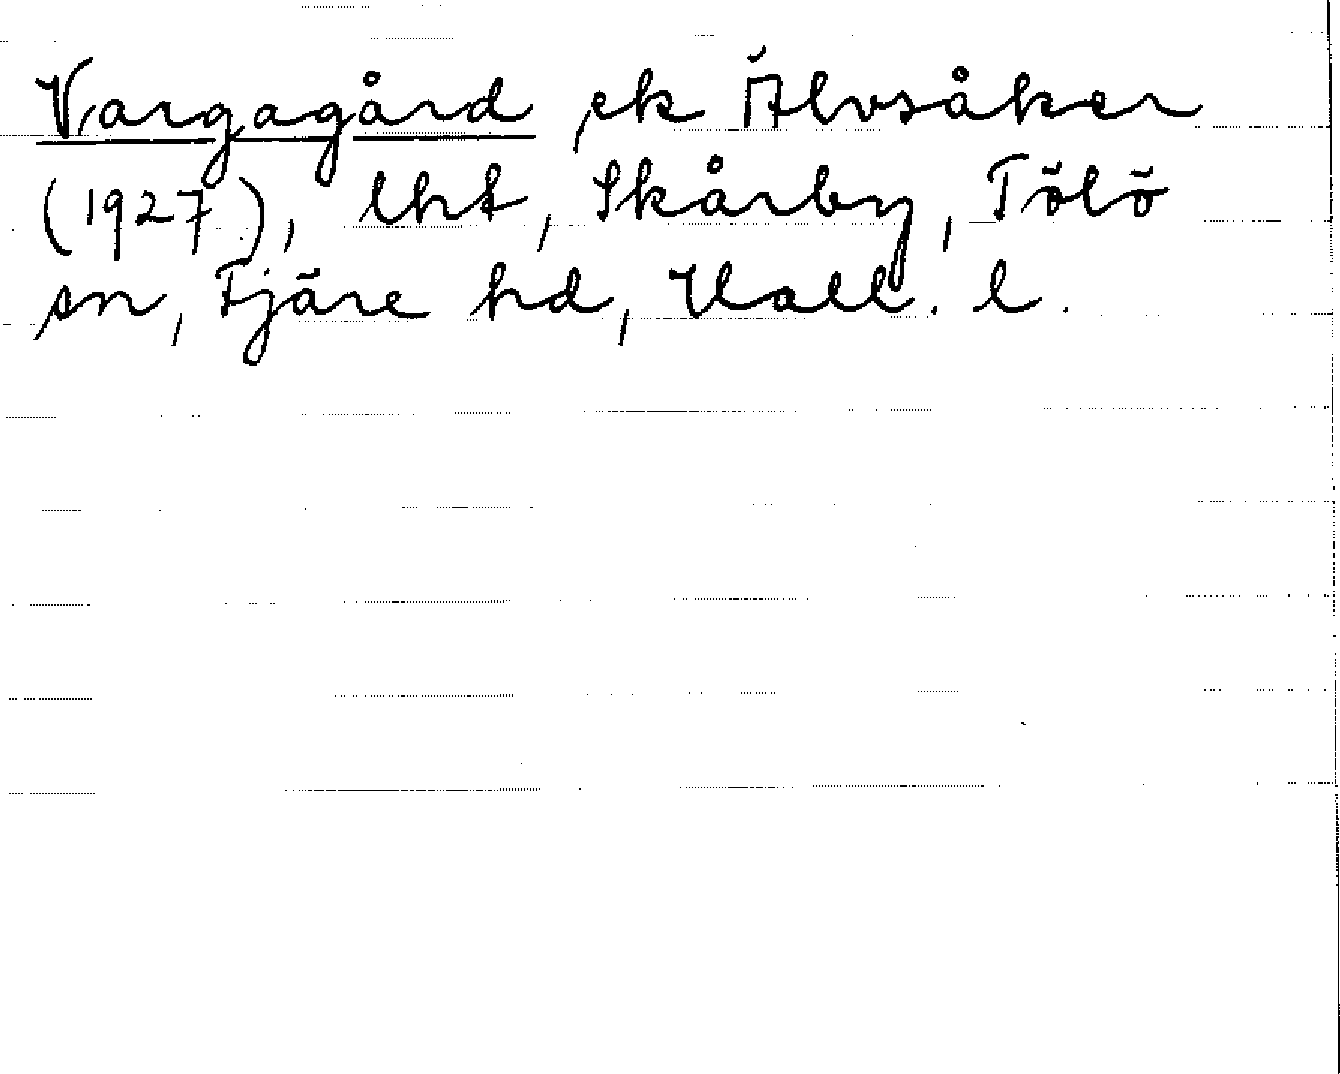 Vargagård, ek Älvsåker
(1927), lht, Skårby, Tölö
sn, Fjäre hd, Hall. l.